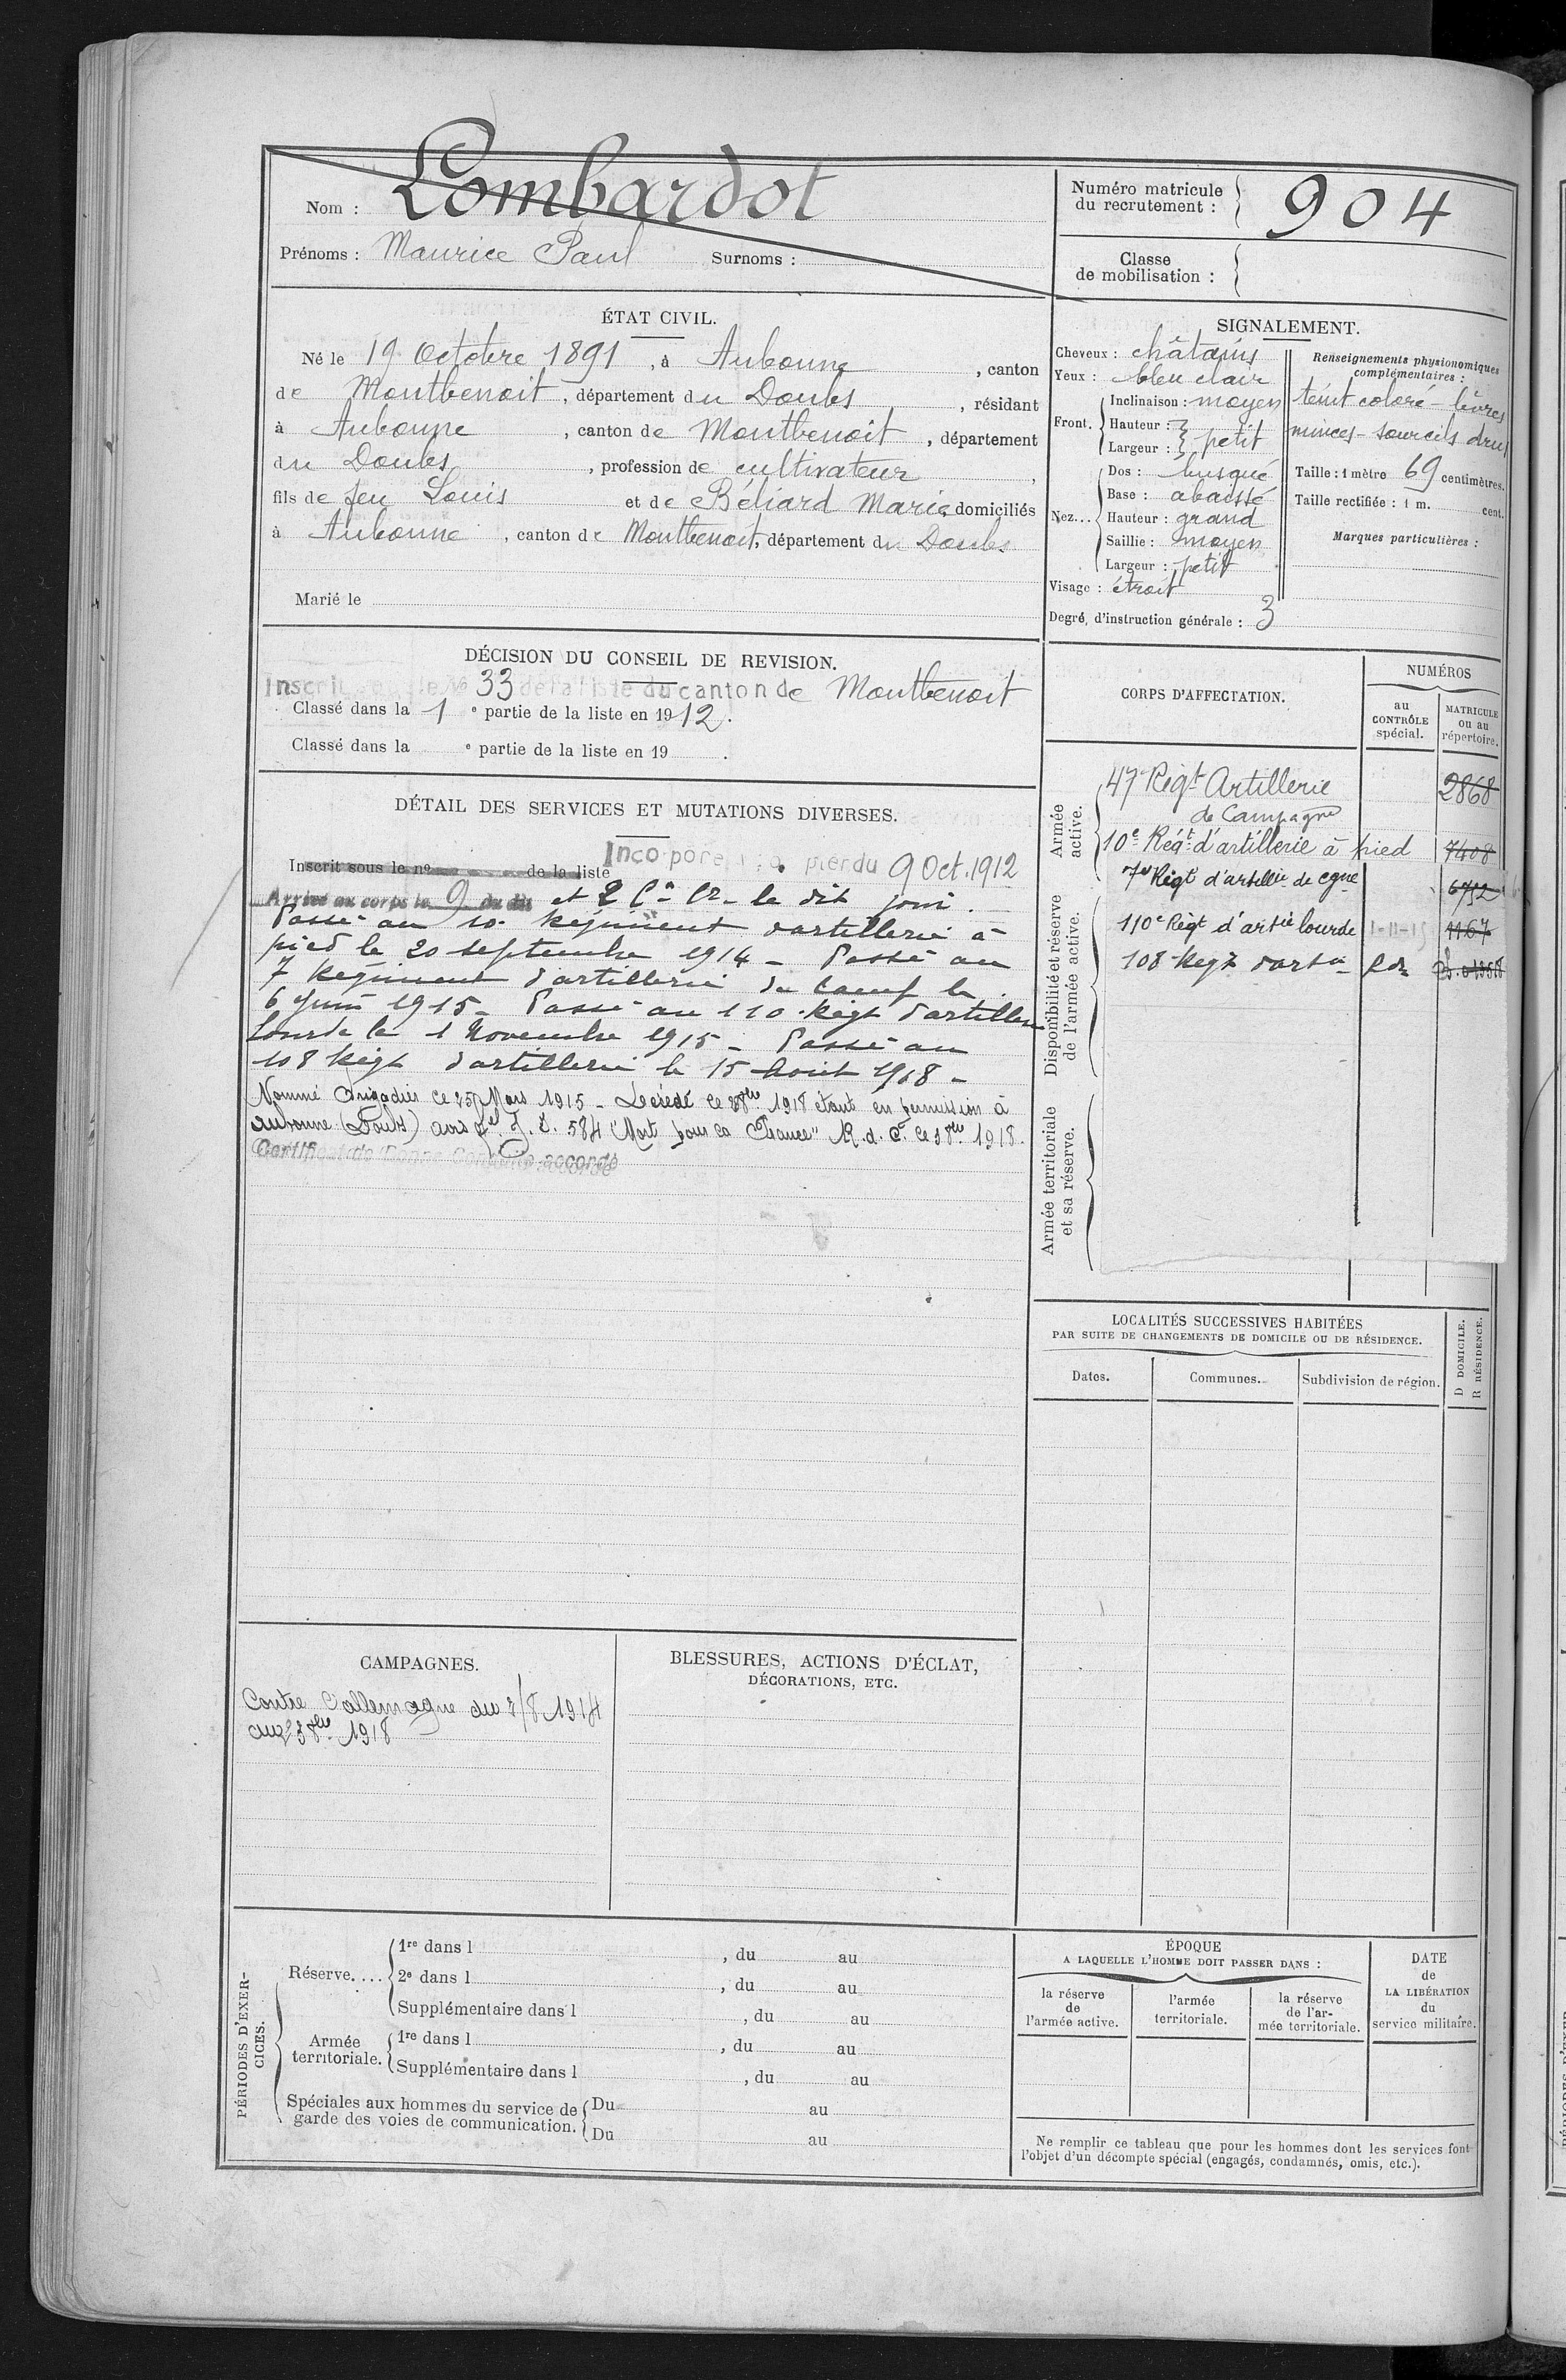 Nom : Lombardot
Prénoms : Maurice Paul Surnoms :
Numéro matricule du recrutement : 904
Classe de mobilisation :
ÉTAT CIVIL.
Né le 19 Octobre 1891, à Aubonne, canton
de Montbenoit, département du Doubs, résidant
à Aubonne, canton de Montbenoit, département
du Doubs, profession de cultivateur,
fils de feu Louis et de Béliard Marie domiciliés
à Aubonne, canton de Montbenoit, département du Doubs
Marié le
SIGNALEMENT.
Cheveux : châtains
Yeux : bleu clair
Front. Inclinaison : moyen
Hauteur :
Largeur : petit
Nez... Dos : busqué
Base : abaissé
Hauteur : grand
Saillie : moyen
Largeur : petit
Visage : étroit
Degré d'instruction générale : 3
Renseignements physionomiques complémentaires :
teint coloré - lèvres
minces - sourcils drus
Taille : 1 mètre 69 centimètres.
Taille rectifiée : 1 m. cent.
Marques particulières :
DÉCISION DU CONSEIL DE REVISION.
Inscrit sous le N° 33 de la liste du canton de Montbenoit
Classé dans la 1e partie de la liste en 1912.
Classé dans la e partie de la liste en 19 .
DÉTAIL DES SERVICES ET MUTATIONS DIVERSES.
Inscrit sous le n° de la liste Incorporé à compter du 9 Oct. 1912
Arrivé au corps le 9 du dit et 2e Cr Cr le dit jour.
Passé au 10e Régiment d'artillerie à
pied le 20 septembre 1914 - Passé au
7 Régiment d'artillerie de Camp le
6 Juin 1915 - Passé au 110 Régt d'artillerie
lourde le 1 Novembre 1915 - Passé au
108 Régt d'artillerie le 15 Août 1918 -
Nommé Brigadier le 25 Mars 1915 - Décédé le 3 8bre 1918 étant en permission à
Aubonne (Doubs) avis 584 "Mort pour la France" R.d.C. le 3 8bre 1918.
Certificat de Bonne Conduite accordé
CORPS D'AFFECTATION.
NUMÉROS
au CONTRÔLE spécial.
MATRICULE ou au répertoire.
Armée active.
47e Régt Artillerie de Campagne 2868
10e Régt d'artillerie à pied 7408
Disponibilité et réserve de l'armée active.
7e Régt d'artillie de cgne 6752
110e Régt d'artie lourde 1-11-15 1167
108e Régt d'artie
Armée territoriale et sa réserve.
LOCALITÉS SUCCESSIVES HABITÉES
PAR SUITE DE CHANGEMENTS DE DOMICILE OU DE RÉSIDENCE.
Dates.
Communes.
Subdivision de région.
D DOMICILE.
R RÉSIDENCE.
CAMPAGNES.
Contre l'allemagne du 2/8 1914
au 3 8bre 1918
BLESSURES, ACTIONS D'ÉCLAT,
DÉCORATIONS, ETC.
PÉRIODES D'EXERCICES.
Réserve.... 1re dans l , du au
2e dans l , du au
Supplémentaire dans l , du au
Armée territoriale. 1re dans l , du au
Supplémentaire dans l , du au
Spéciales aux hommes du service de garde des voies de communication. Du au
Du au
ÉPOQUE
A LAQUELLE L'HOMME DOIT PASSER DANS :
la réserve de l'armée active.
l'armée territoriale.
la réserve de l'armée territoriale.
DATE de LA LIBÉRATION du service militaire.
Ne remplir ce tableau que pour les hommes dont les services font
l'objet d'un décompte spécial (engagés, condamnés, omis, etc.).